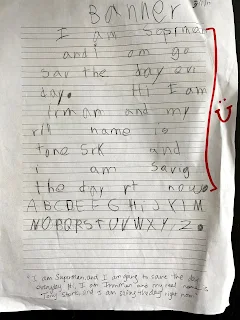 Banner
I am Suprman
and i am go
Sav the day evr
day. Hi I am
Irman and my
rll name is
tone Srk and
i am Savig
the day rt now
A B C D E F G H i J K l M
N O P Q R S T U V W X Y Z.
"I am Superman and I am going to save the day
everyday. Hi, I am Ironman and my real name is
Tony Stark and I am saving the day right now."